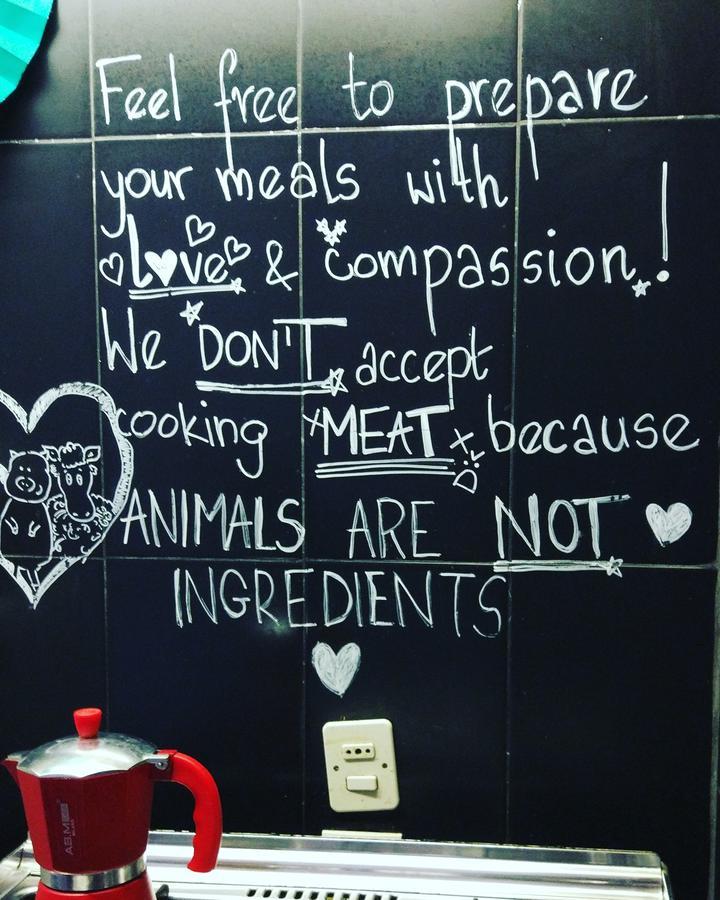 Feel free to prepare
your meals with
Love & compassion!
We DON'T accept
cooking MEAT because
ANIMALS ARE NOT
INGREDIENTS